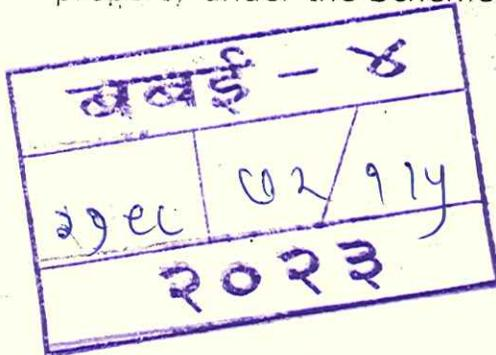 property under the Scheme
बबई - ४
७२/११५
२०२३